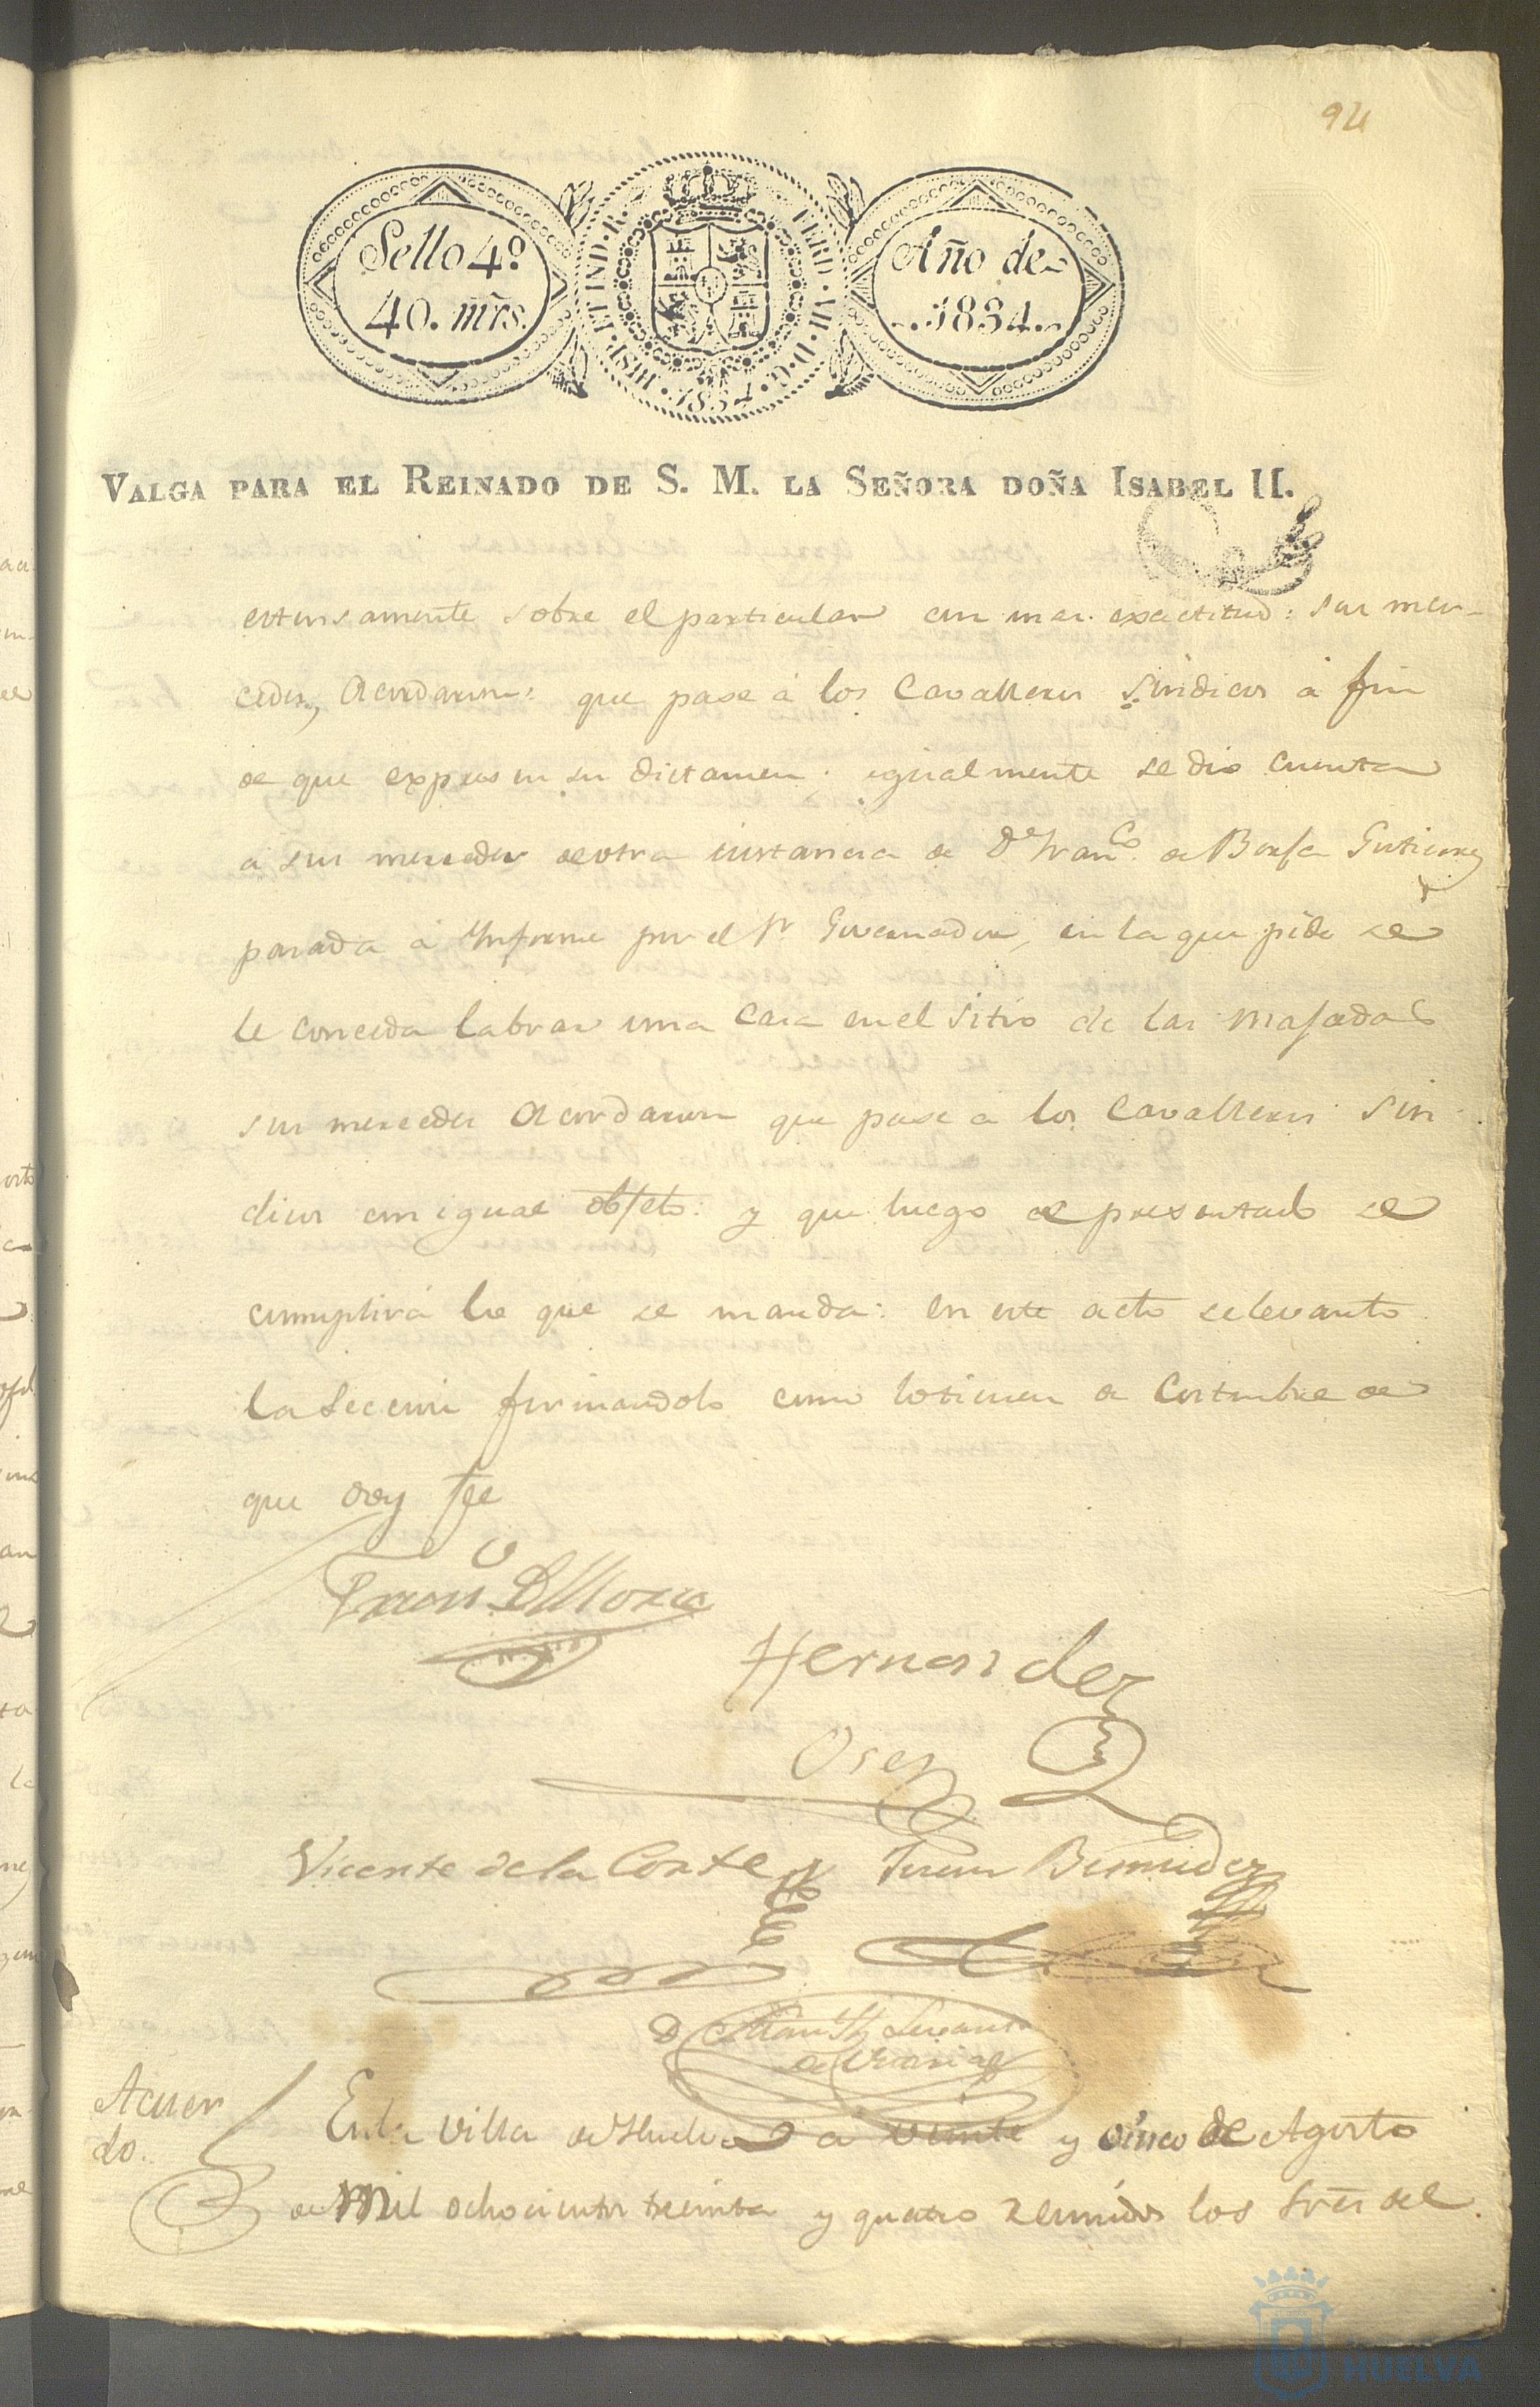 94
Sello 4º
40. mrs.
HISP. ET IND. R.
FERD. VII. D. G.
1834
Año de
1834.
VALGA PARA EL REINADO DE S. M. LA SEÑORA DOÑA ISABEL II.
estensamente sobre el particular con mas exactitud: sus mer-
cedes, Acordaron: que pase á los Cavalleros Sindicos á fin
de que expresen su dictamen: igualmente se dio cuenta
á sus mercedes de otra instancia de Dn Franco. de Gutierrez
pasada á Informe por el Sr Governador, en la que pide se
le conceda labrar una Casa en el Sitio de las Majadas
sus mercedes Acordaron que pase á los Cavalleros Sin-
dicos con igual objeto: y que luego de presentado se
cumplirá lo que se manda: en este acto se levanto
la Seccion firmandolo como lo tienen de Costumbre de
que doy fee
Hernandez
Vicente de la Corte
Bermudez
Acuer
do.
En la Villa de Huelva á veinte y cinco de Agosto
de Mil ochocientos treinta y quatro Reunidos los Sres del
HUELVA